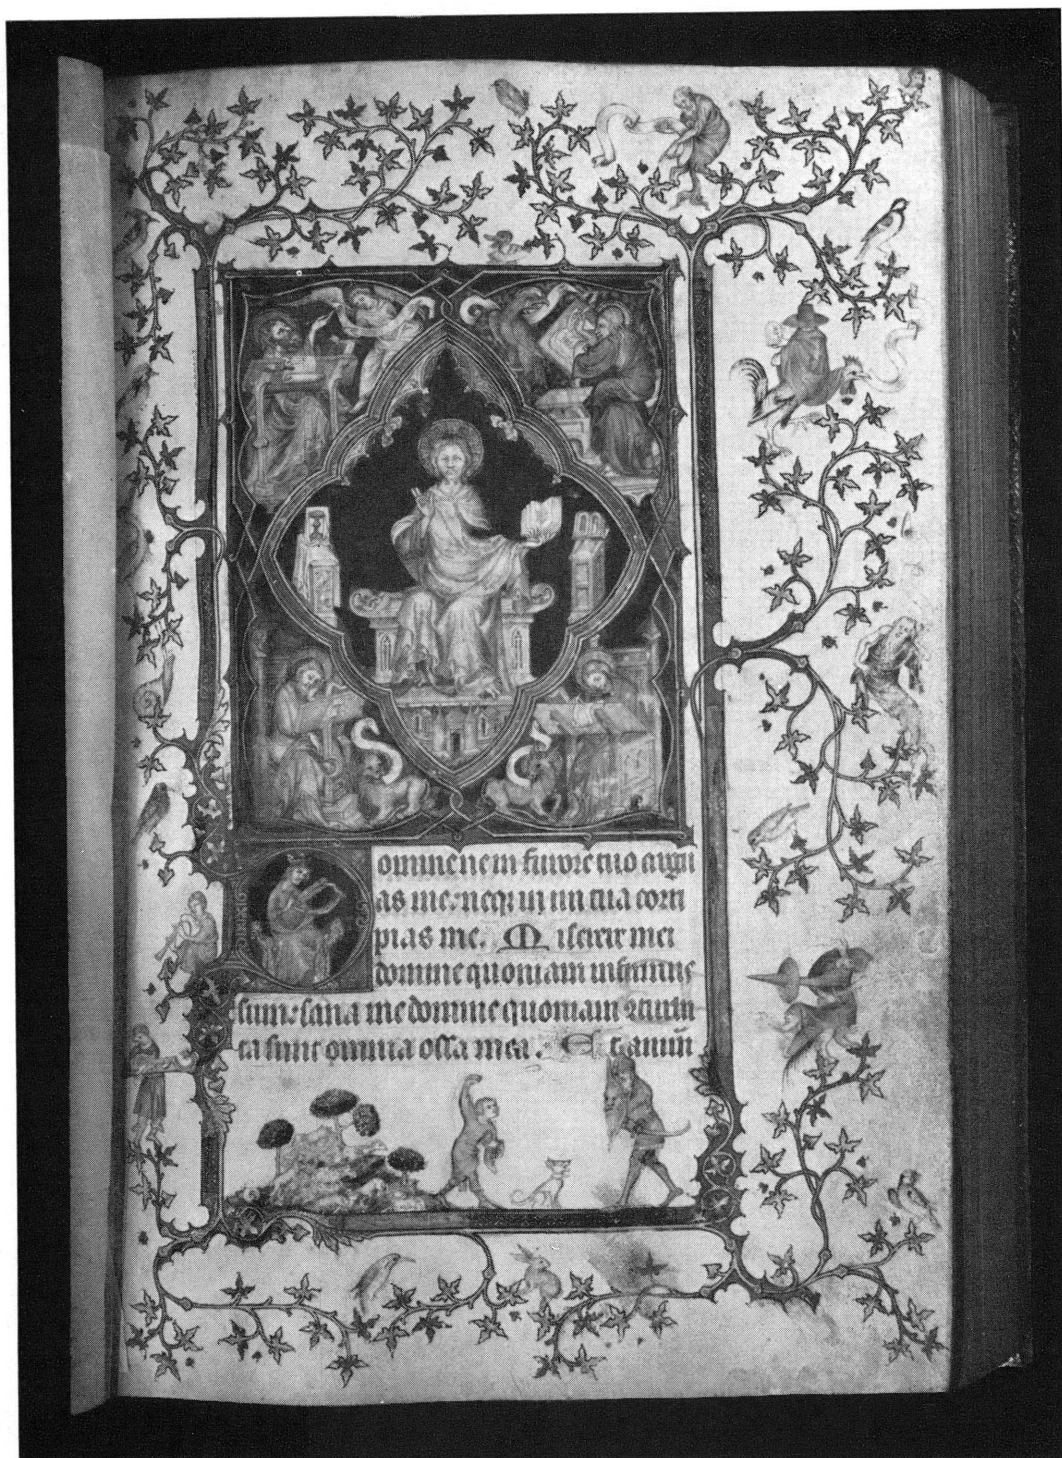 omine ne in furore tuo argu
as me: neqz in ira tua corri
pias me. Miserere mei
domine quoniam infirmus
sum: sana me domine quoniam conturba
ta sunt omnia ossa mea. Et anima